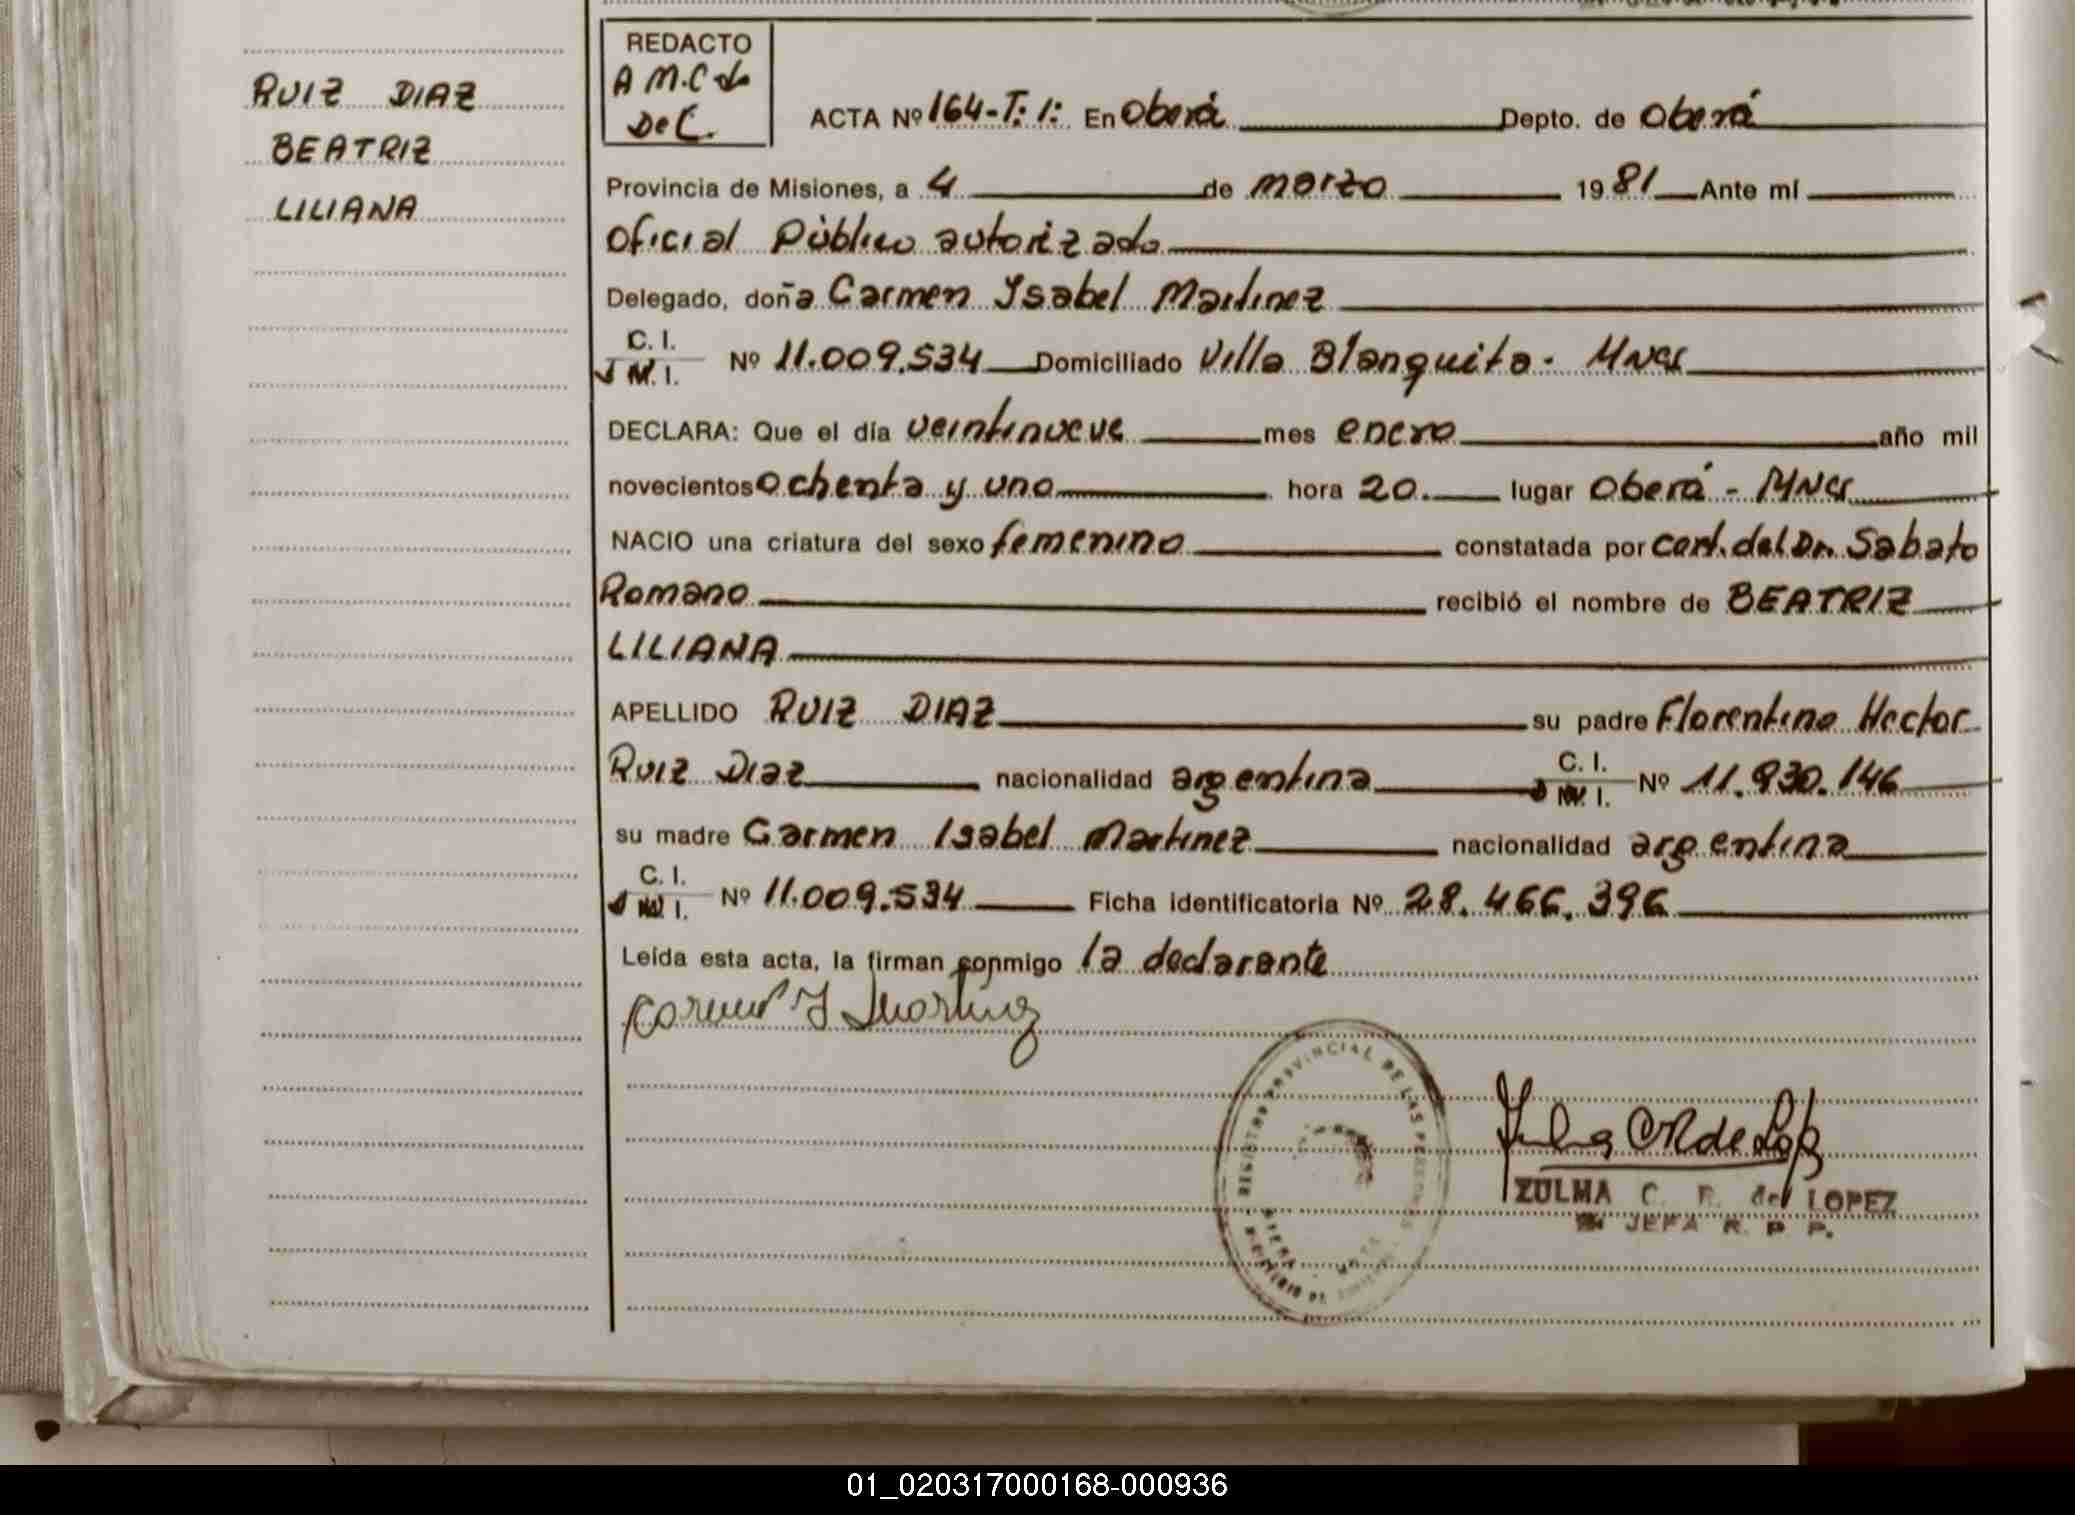 RUIZ DIAZ
BEATRIZ
LILIANA
REDACTO
A M.C de
De C.
ACTA Nº 164-T: 1: En Oberá Depto. de Oberá
Provincia de Misiones, a 4 de marzo 1981 Ante mí
Oficial Público autorizado
Delegado, doña Carmen Ysabel Martinez
C. I.
M. I. Nº 11.009.534 Domiciliado Villa Blanquita - Mnes
DECLARA: Que el día veintinueve mes enero año mil
novecientos ochenta y uno hora 20. lugar Oberá - Mnes
NACIO una criatura del sexo femenino constatada por cert. del Dr. Sabato
Romano recibió el nombre de BEATRIZ
LILIANA
APELLIDO RUIZ DIAZ su padre Florentino Hector
Ruiz Diaz nacionalidad argentina C. I.
M. I. Nº 11.930.146
su madre Carmen Isabel Martinez nacionalidad argentina
C. I.
M. I. Nº 11.009.534 Ficha identificatoria Nº 28.466.396
Leída esta acta, la firman conmigo la declarante
Carmen Y Martinez
REGISTRO PROVINCIAL DE LAS PERSONAS
Zulma CR de Lopez
ZULMA C. R. de LOPEZ
JEFA R. P. P.
01_020317000168-000936